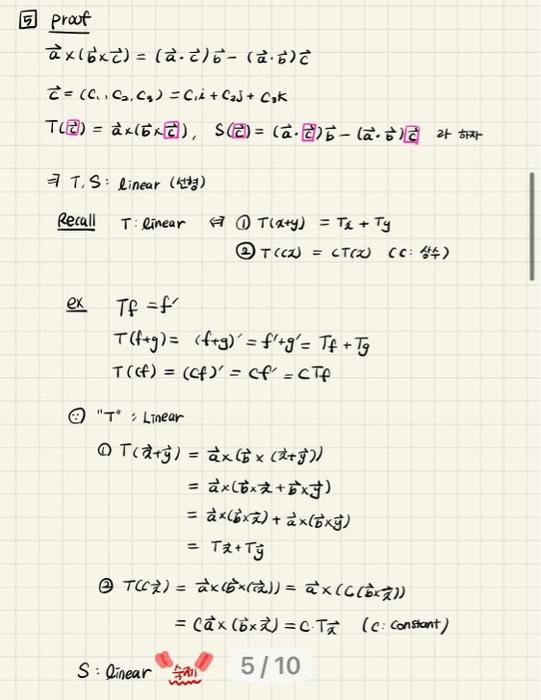 5 proof
a⃗×(b⃗×c⃗) = (a⃗·c⃗)b⃗ - (a⃗·b⃗)c⃗
c⃗ = (C₁, C₂, C₃) = C₁i + C₂j + C₃k
T(c⃗) = a⃗×(b⃗×c⃗), S(c⃗) = (a⃗·c⃗)b⃗ - (a⃗·b⃗)c⃗ 라 하자
⇒ T, S : linear (선형)
Recall T : linear ⇔ ① T(x+y) = Tx + Ty
② T(cx) = cT(x) (c : 상수)
ex Tf = f′
T(f+g) = (f+g)′ = f′+g′ = Tf + Tg
T(cf) = (cf)′ = cf′ = cTf
∵ "T" : Linear
① T(x⃗+y⃗) = a⃗×(b⃗ × (x⃗+y⃗))
= a⃗×(b⃗×x⃗ + b⃗×y⃗)
= a⃗×(b⃗×x⃗) + a⃗×(b⃗×y⃗)
= Tx⃗ + Ty⃗
② T(cx⃗) = a⃗×(b⃗×(cx⃗)) = a⃗×(c(b⃗×x⃗))
= ca⃗×(b⃗×x⃗) = c·Tx⃗ (c : constant)
S : linear "숙제" 5/10